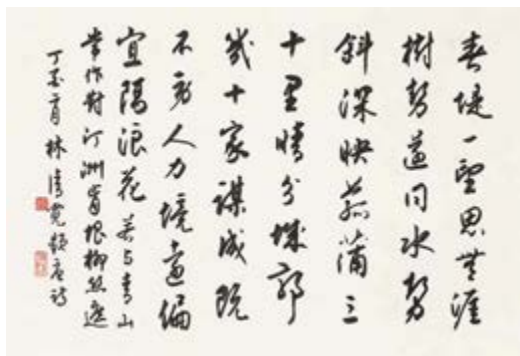 春堤一望思無涯
樹勢還同水勢
斜深映菰蒲三
十里晴分城郭
幾十家謀成既
不勞人力境遠偏
宜隔浪花若與青山
常作對汀洲肯恨柳絲遮
丁亥二月林清霓錄唐詩